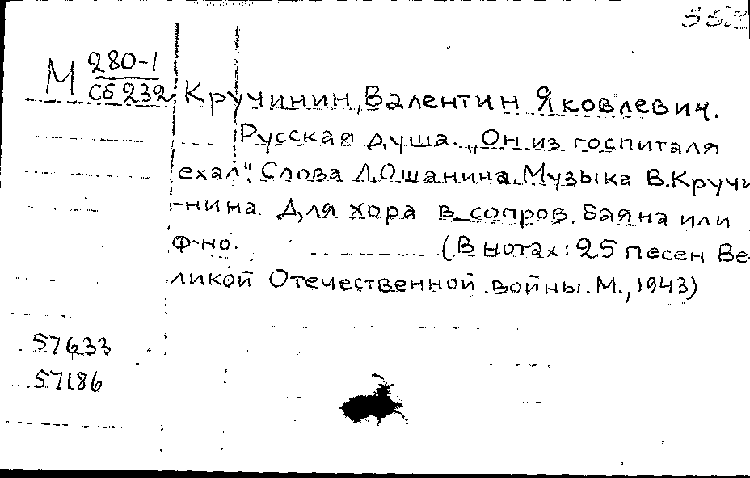 М 280-1
Сб 232
Кручинин, Валентин Яковлевич.
Русская душа. „Он из госпиталя
ехал". Слова Л.Ошанина. Музыка В.Кручи-
нина. Для хора в сопров. баяна или
ф-но. (В нотах: 25 песен Ве-
ликой Отечественной войны. М., 1943)
57633
57186